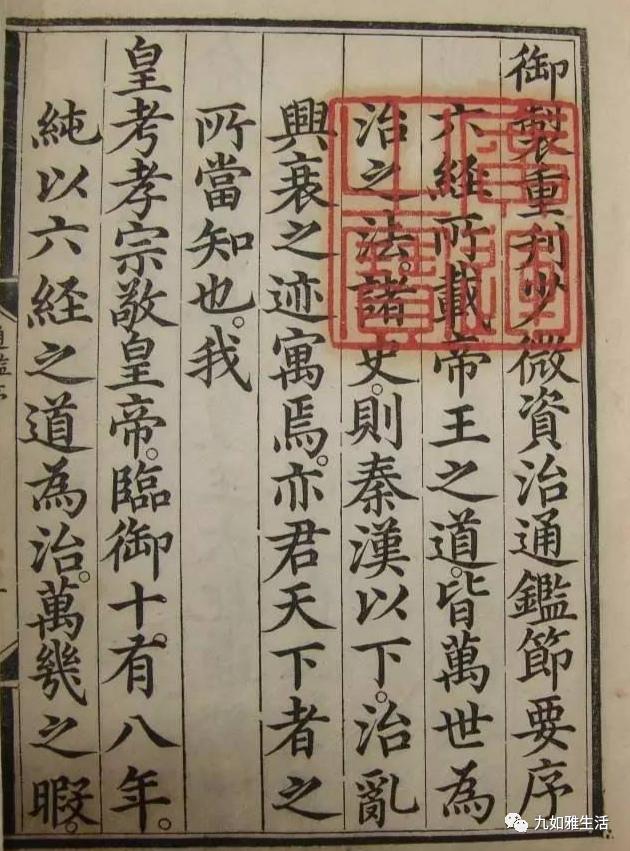 御製重刋少微資治通鑑節要序
六經所載帝王之道。皆萬世為
治之法。諸史。則秦漢以下。治亂
興衰之迹寓焉。亦君天下者之
所當知也。我
皇考孝宗敬皇帝。臨御十。有八年。
純以六経之道為治。萬㡬之暇。
九如雅生活